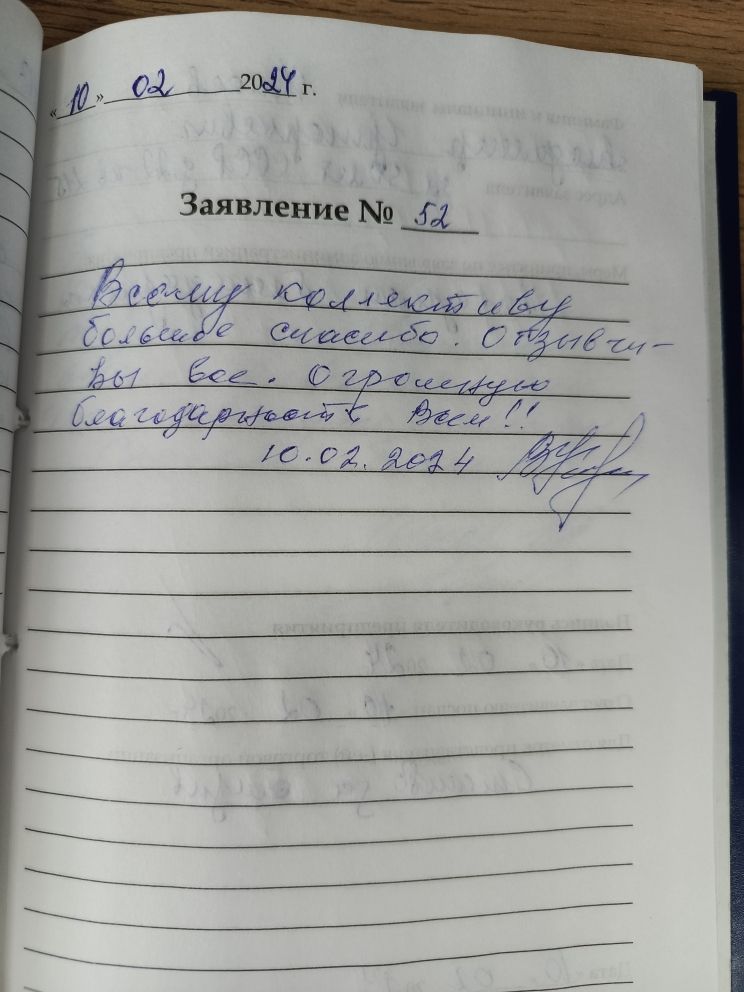 «10» 02 2024 г.
Заявление № 52
Всему коллективу
большое спасибо! Отзывчи-
вы все. Огромную
благодарность Всем!!
10.02.2024